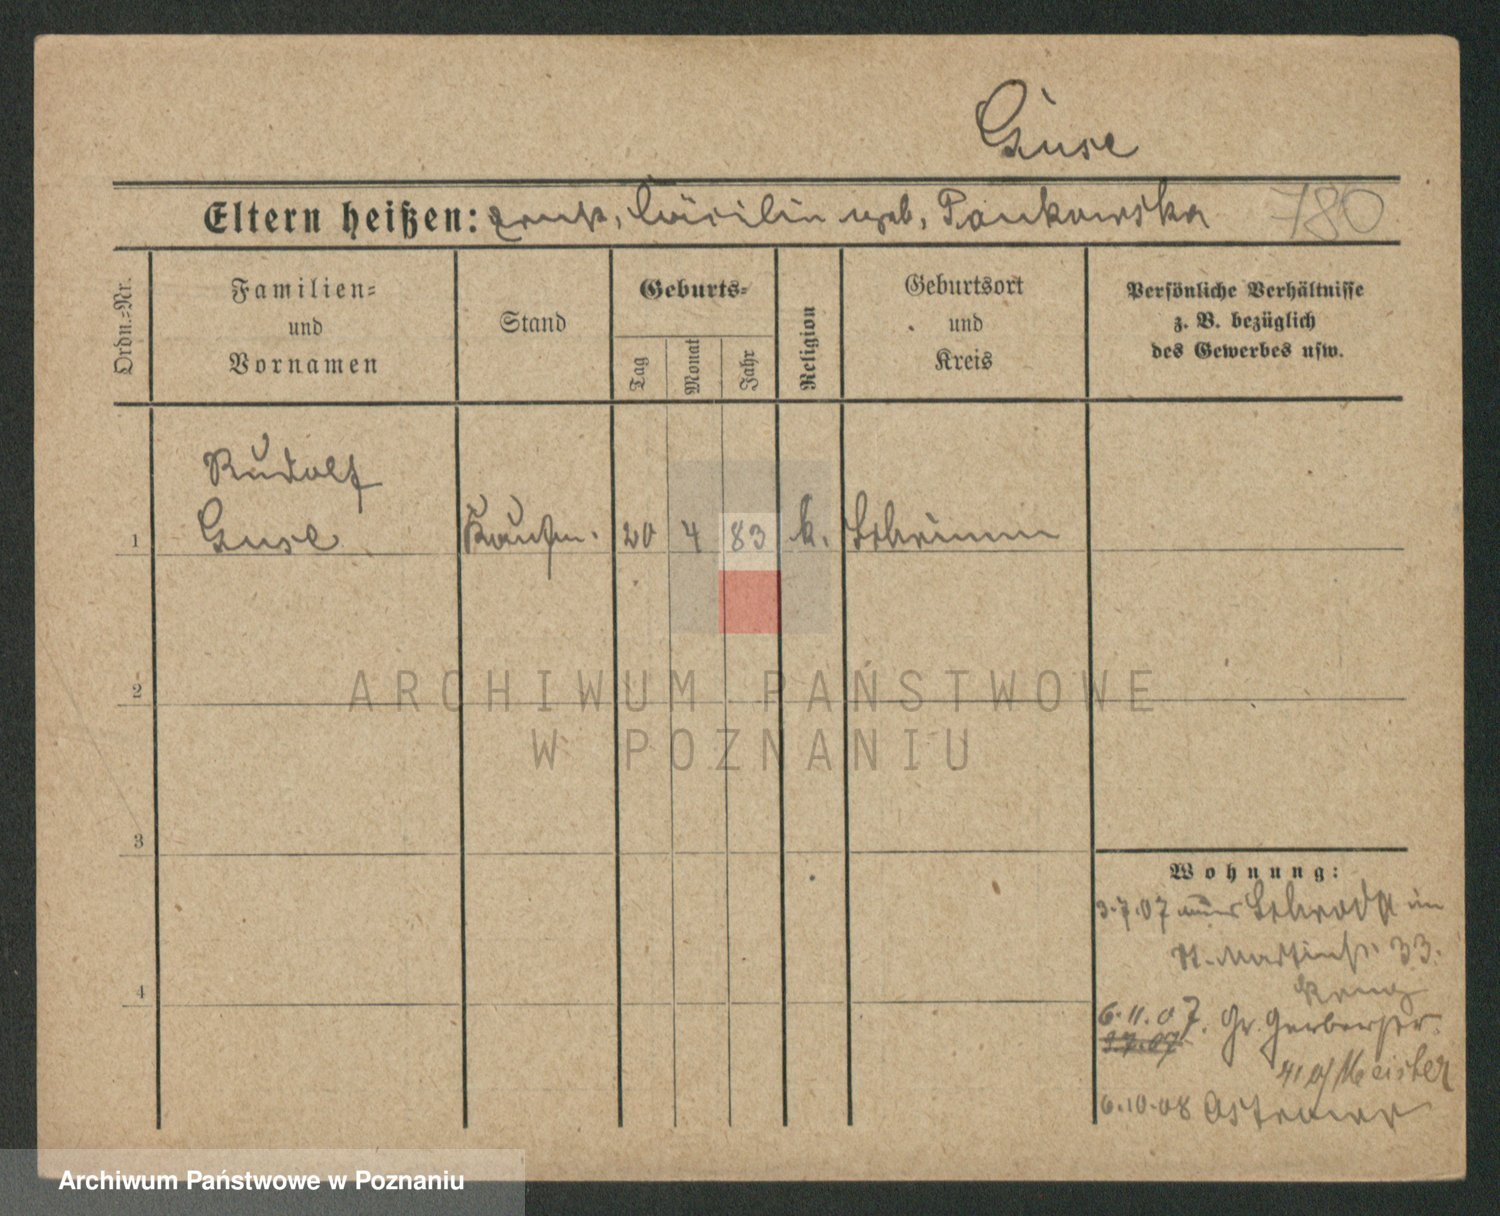 Guse
Eltern heißen: Ernst, Cäcilie geb. Pankowska 780
Ordn.-Nr.
Familien-
und
Vornamen
Stand
Geburts-
Tag
Monat
Jahr
Religion
Geburtsort
und
Kreis
Persönliche Verhältnisse
z. B. bezüglich
des Gewerbes usw.
Rudolf
1 Guse Kaufm. 20 4 83 k. Schrimm
2
3
4
Wohnung:
3.7.07 aus Schroda in
St. Martinstr. 33.
Krug
6.11.07. Gr. Gerberstr.
3.7.07
41 b/ Meister
6.10.08
ARCHIWUM PAŃSTWOWE
W POZNANIU
Archiwum Państwowe w Poznaniu